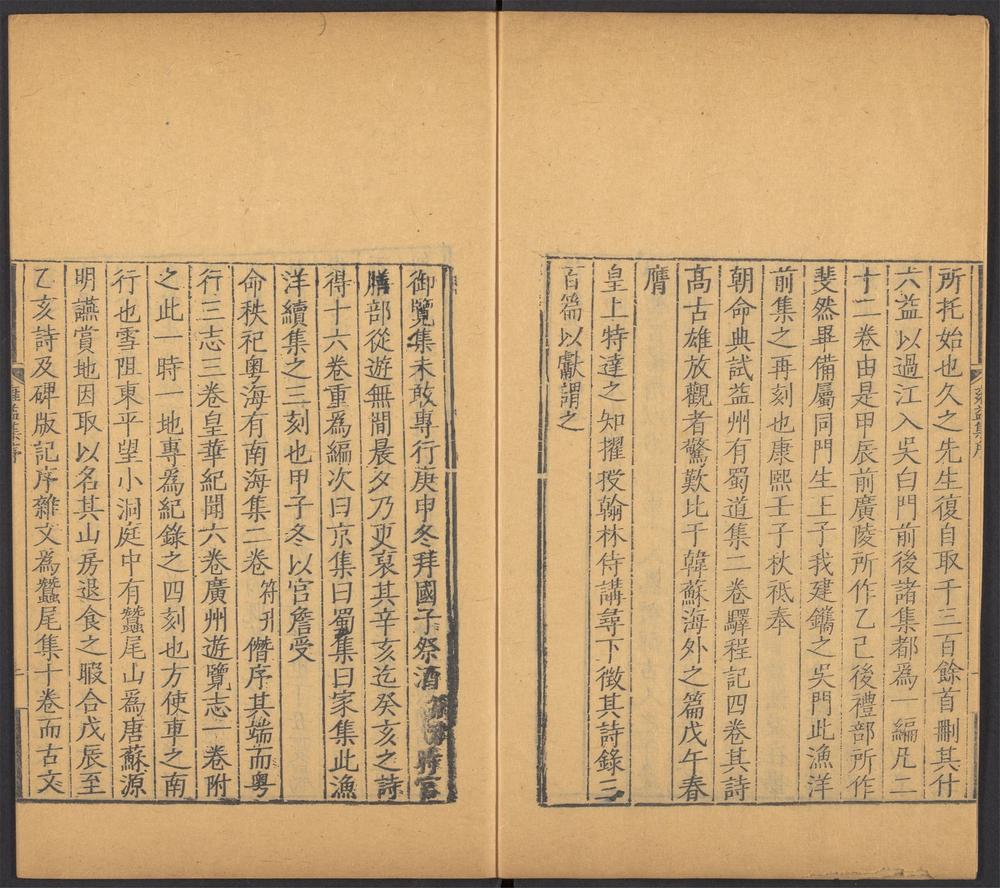 所托始也久之先生復自取千三百餘首刪其什
六益以過江入吳白門前後諸集都為一編凡二
十二卷由是甲辰前廣陵所作乙巳後禮部所作
斐然畢備屬同門生王子我建鐫之吳門此漁洋
前集之再刻也康熙壬子秋祗奉
朝命典試益州有蜀道集二卷驛程記四卷其詩
高古雄放觀者驚歎比于韓蘇海外之篇戊午春
膺
皇上特達之知擢授翰林侍講尋下徵其詩錄三
百篇以獻謂之
御覽集未敢專行庚申冬拜國子祭酒
膳部從遊無間晨夕乃更裒其辛亥迄癸亥之詩
得十六卷重為編次曰京集曰蜀集曰家集此漁
洋續集之三刻也甲子冬以宮詹受
命秩祀粵海有南海集二卷符升僭序其端而粵
行三志三卷皇華紀聞六卷廣州遊覽志一卷附
之此一時一地專為紀錄之四刻也方使車之南
行也雪阻東平望小洞庭中有蠶尾山為唐蘇源
明讌賞地因取以名其山房退食之暇合戊辰至
乙亥詩及碑版記序雜文為蠶尾集十卷而古文
雍益集序